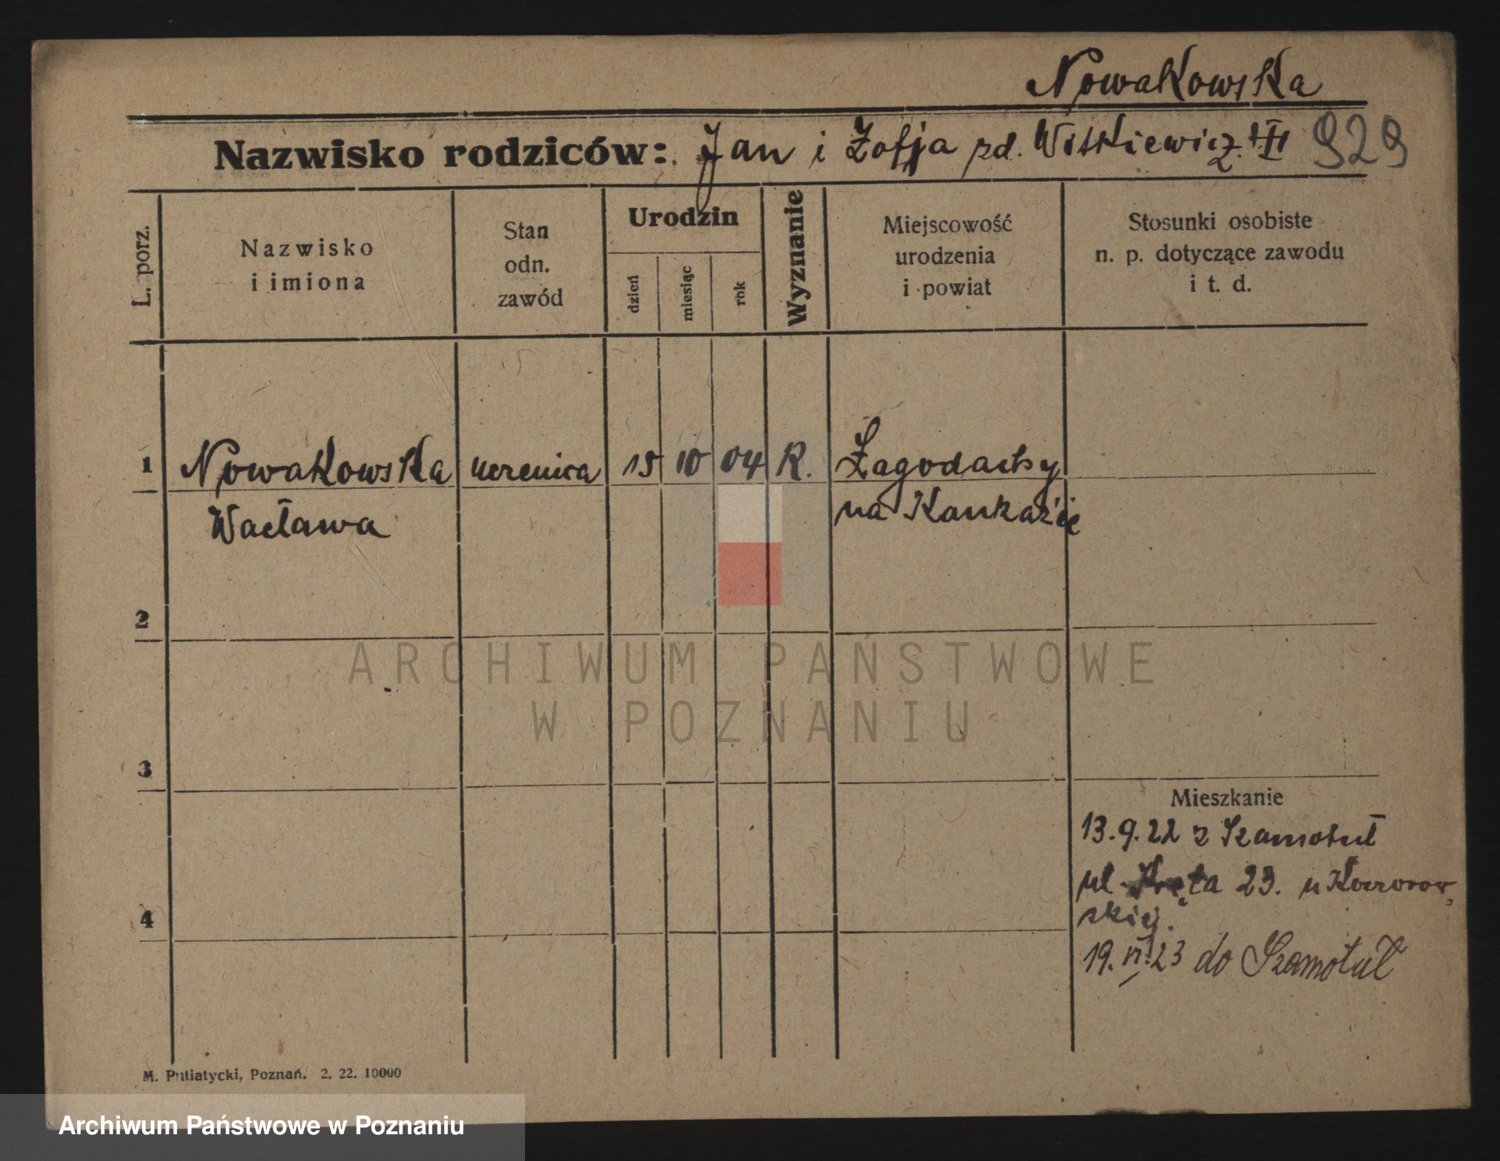 Nowakowska
Nazwisko rodziców: Jan i Zofja zd. Witkiewicz. 929
L. porz.
Nazwisko i imiona
Stan odn. zawód
Urodzin
dzień
miesiąc
rok
Wyznanie
Miejscowość urodzenia i powiat
Stosunki osobiste n. p. dotyczące zawodu i t. d.
1 Nowakowska uczenica 15 10 04 R. Zagodachy
Wacława na Kaukazie
2
3
4
ARCHIWUM PAŃSTWOWE
W POZNANIU
Mieszkanie
13.9.22 z Szamotuł
ul. Kręta 23. u Koczorow-
skiej.
19.VI.23 do Szamotuł
M. Putiatycki, Poznań. 2. 22. 10000
Archiwum Państwowe w Poznaniu